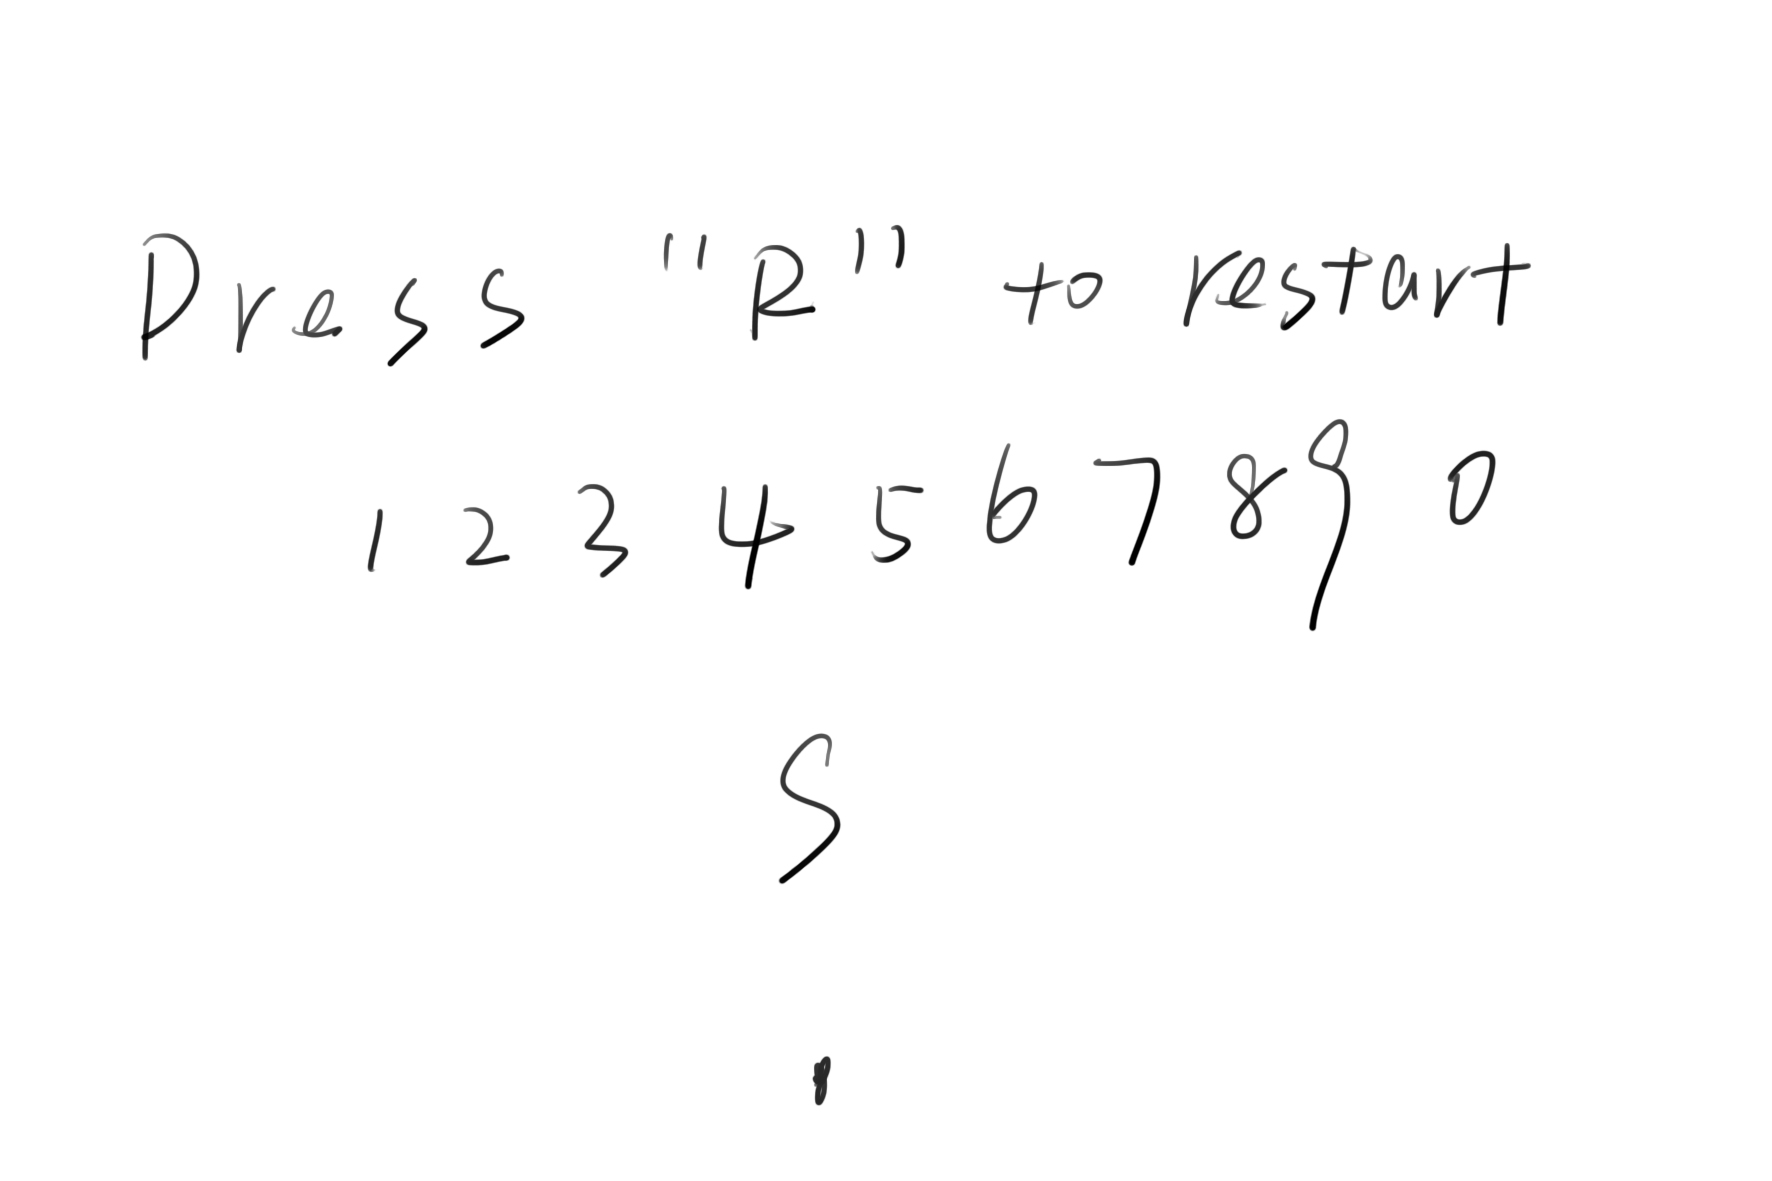 Press "R" to restart
1 2 3 4 5 6 7 8 9 0
S
.